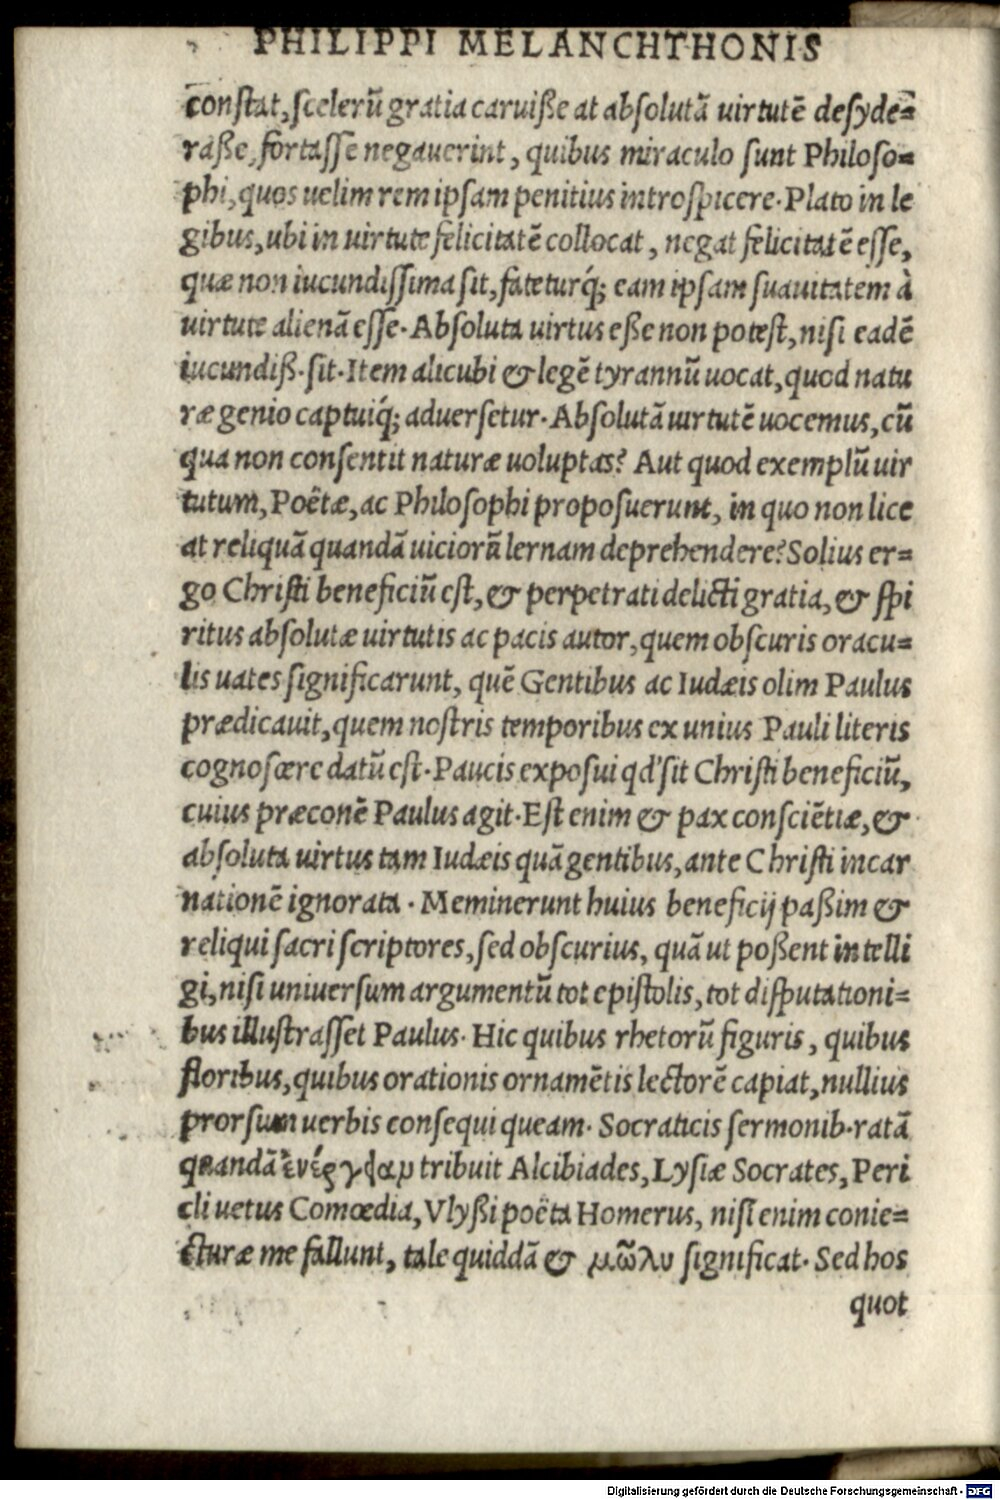 PHILIPPI MELANCHTHONIS
constat, scelerū gratia caruiße at absolutā uirtutē desyde=
raße, fortasse negauerint, quibus miraculo sunt Philoso=
phi, quos uelim rem ipsam penitius introspicere. Plato in le
gibus, ubi in uirtute felicitatē collocat, negat felicitatē esse,
quæ non iucundissima sit, fateturq́; eam ipsam suauitatem à
uirtute alienā esse. Absoluta uirtus eße non potest, nisi eadē
iucundiß. sit. Item alicubi & legē tyrannū uocat, quod natu
ræ genio captuiq́; aduersetur. Absolutā uirtutē uocemus, cū
qua non consentit naturæ uoluptas? Aut quod exemplū uir
tutum, Poëtæ, ac Philosophi proposuerunt, in quo non lice
at reliquā quandā uiciorū lernam deprehendere? Solius er=
go Christi beneficiū est, & perpetrati delicti gratia, & spi
ritus absolutæ uirtutis ac pacis autor, quem obscuris oracu=
lis uates significarunt, quē Gentibus ac Iudæis olim Paulus
prædicauit, quem nostris temporibus ex unius Pauli literis
cognoscere datū est. Paucis exposui qd' sit Christi beneficiū,
cuius præconē Paulus agit. Est enim & pax consciētiæ, &
absoluta uirtus tam Iudæis quā gentibus, ante Christi incar
nationē ignorata. Meminerunt huius beneficij paßim &
reliqui sacri scriptores, sed obscurius, quā ut poßent intelli
gi, nisi uniuersum argumentū tot epistolis, tot disputationi=
bus illustrasset Paulus. Hic quibus rhetorū figuris, quibus
floribus, quibus orationis ornamētis lectorē capiat, nullius
prorsum uerbis consequi queam. Socraticis sermonib. ratā
quandā tribuit Alcibiades, Lysiæ Socrates, Peri
cli uetus Comœdia, Vlyßi poëta Homerus, nisi enim conie=
cturæ me fallunt, tale quiddā & μῶλυ significat. Sed hos
quot
Digitalisierung gefördert durch die Deutsche Forschungsgemeinschaft - DFG